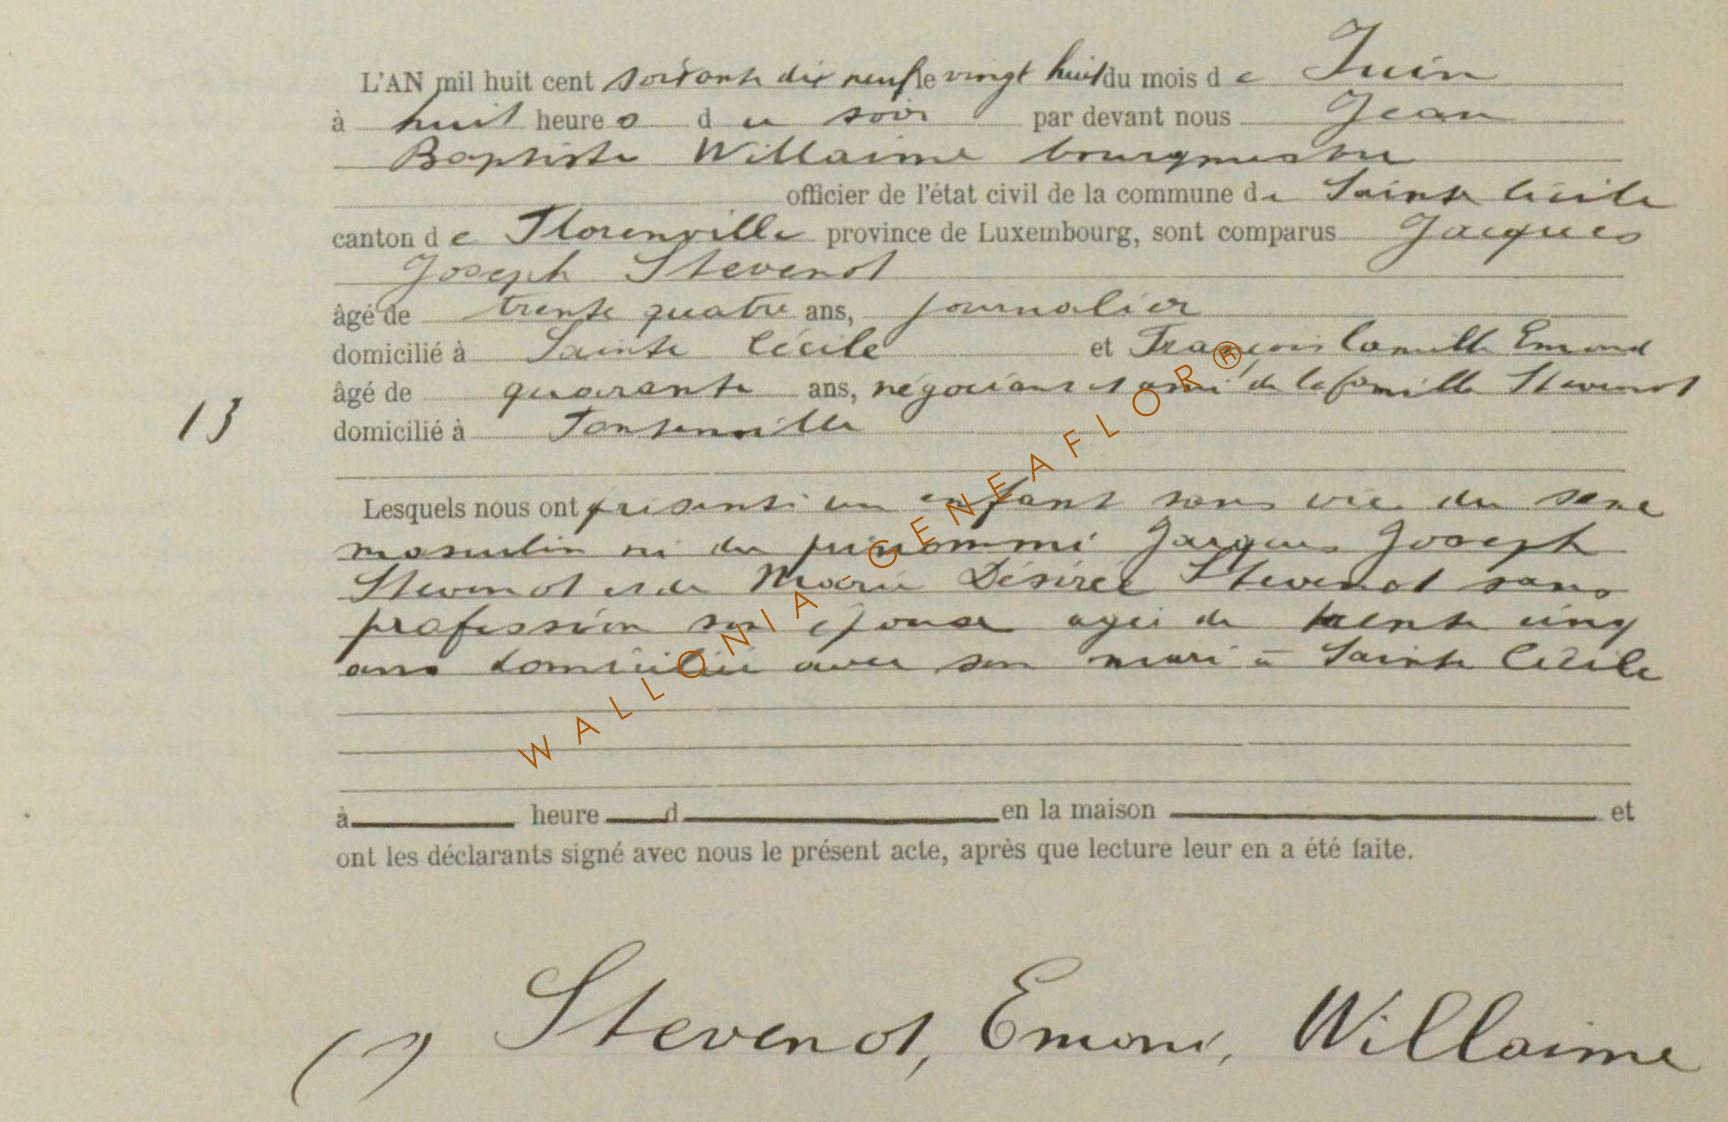 L'AN mil huit cent soixante dix neuf le vingt huit du mois de Juin
à huit heures du soir par devant nous Jean
Baptiste Willaime bourgmestre
officier de l'état civil de la commune de Sainte Cécile
canton de Florenville province de Luxembourg, sont comparus Jacques
Joseph Stevenot
âgé de trente quatre ans, journalier
domicilié à Sainte Cécile et François Camille Emond
âgé de quarante ans, négociant et ami de la famille Stevenot
13
domicilié à Fontenoille
Lesquels nous ont présenté un enfant sans vie du sexe
masculin né du prénommé Jacques Joseph
Stevenot et de Marie Désirée Stevenot sans
profession son épouse agée de trente cinq
ans domiciliée avec son mari à Sainte Cécile
à heure d en la maison et
ont les déclarants signé avec nous le présent acte, après que lecture leur en a été faite.
Stevenot, Emond, Willaime
WALLONIA-GENEAFLOR®